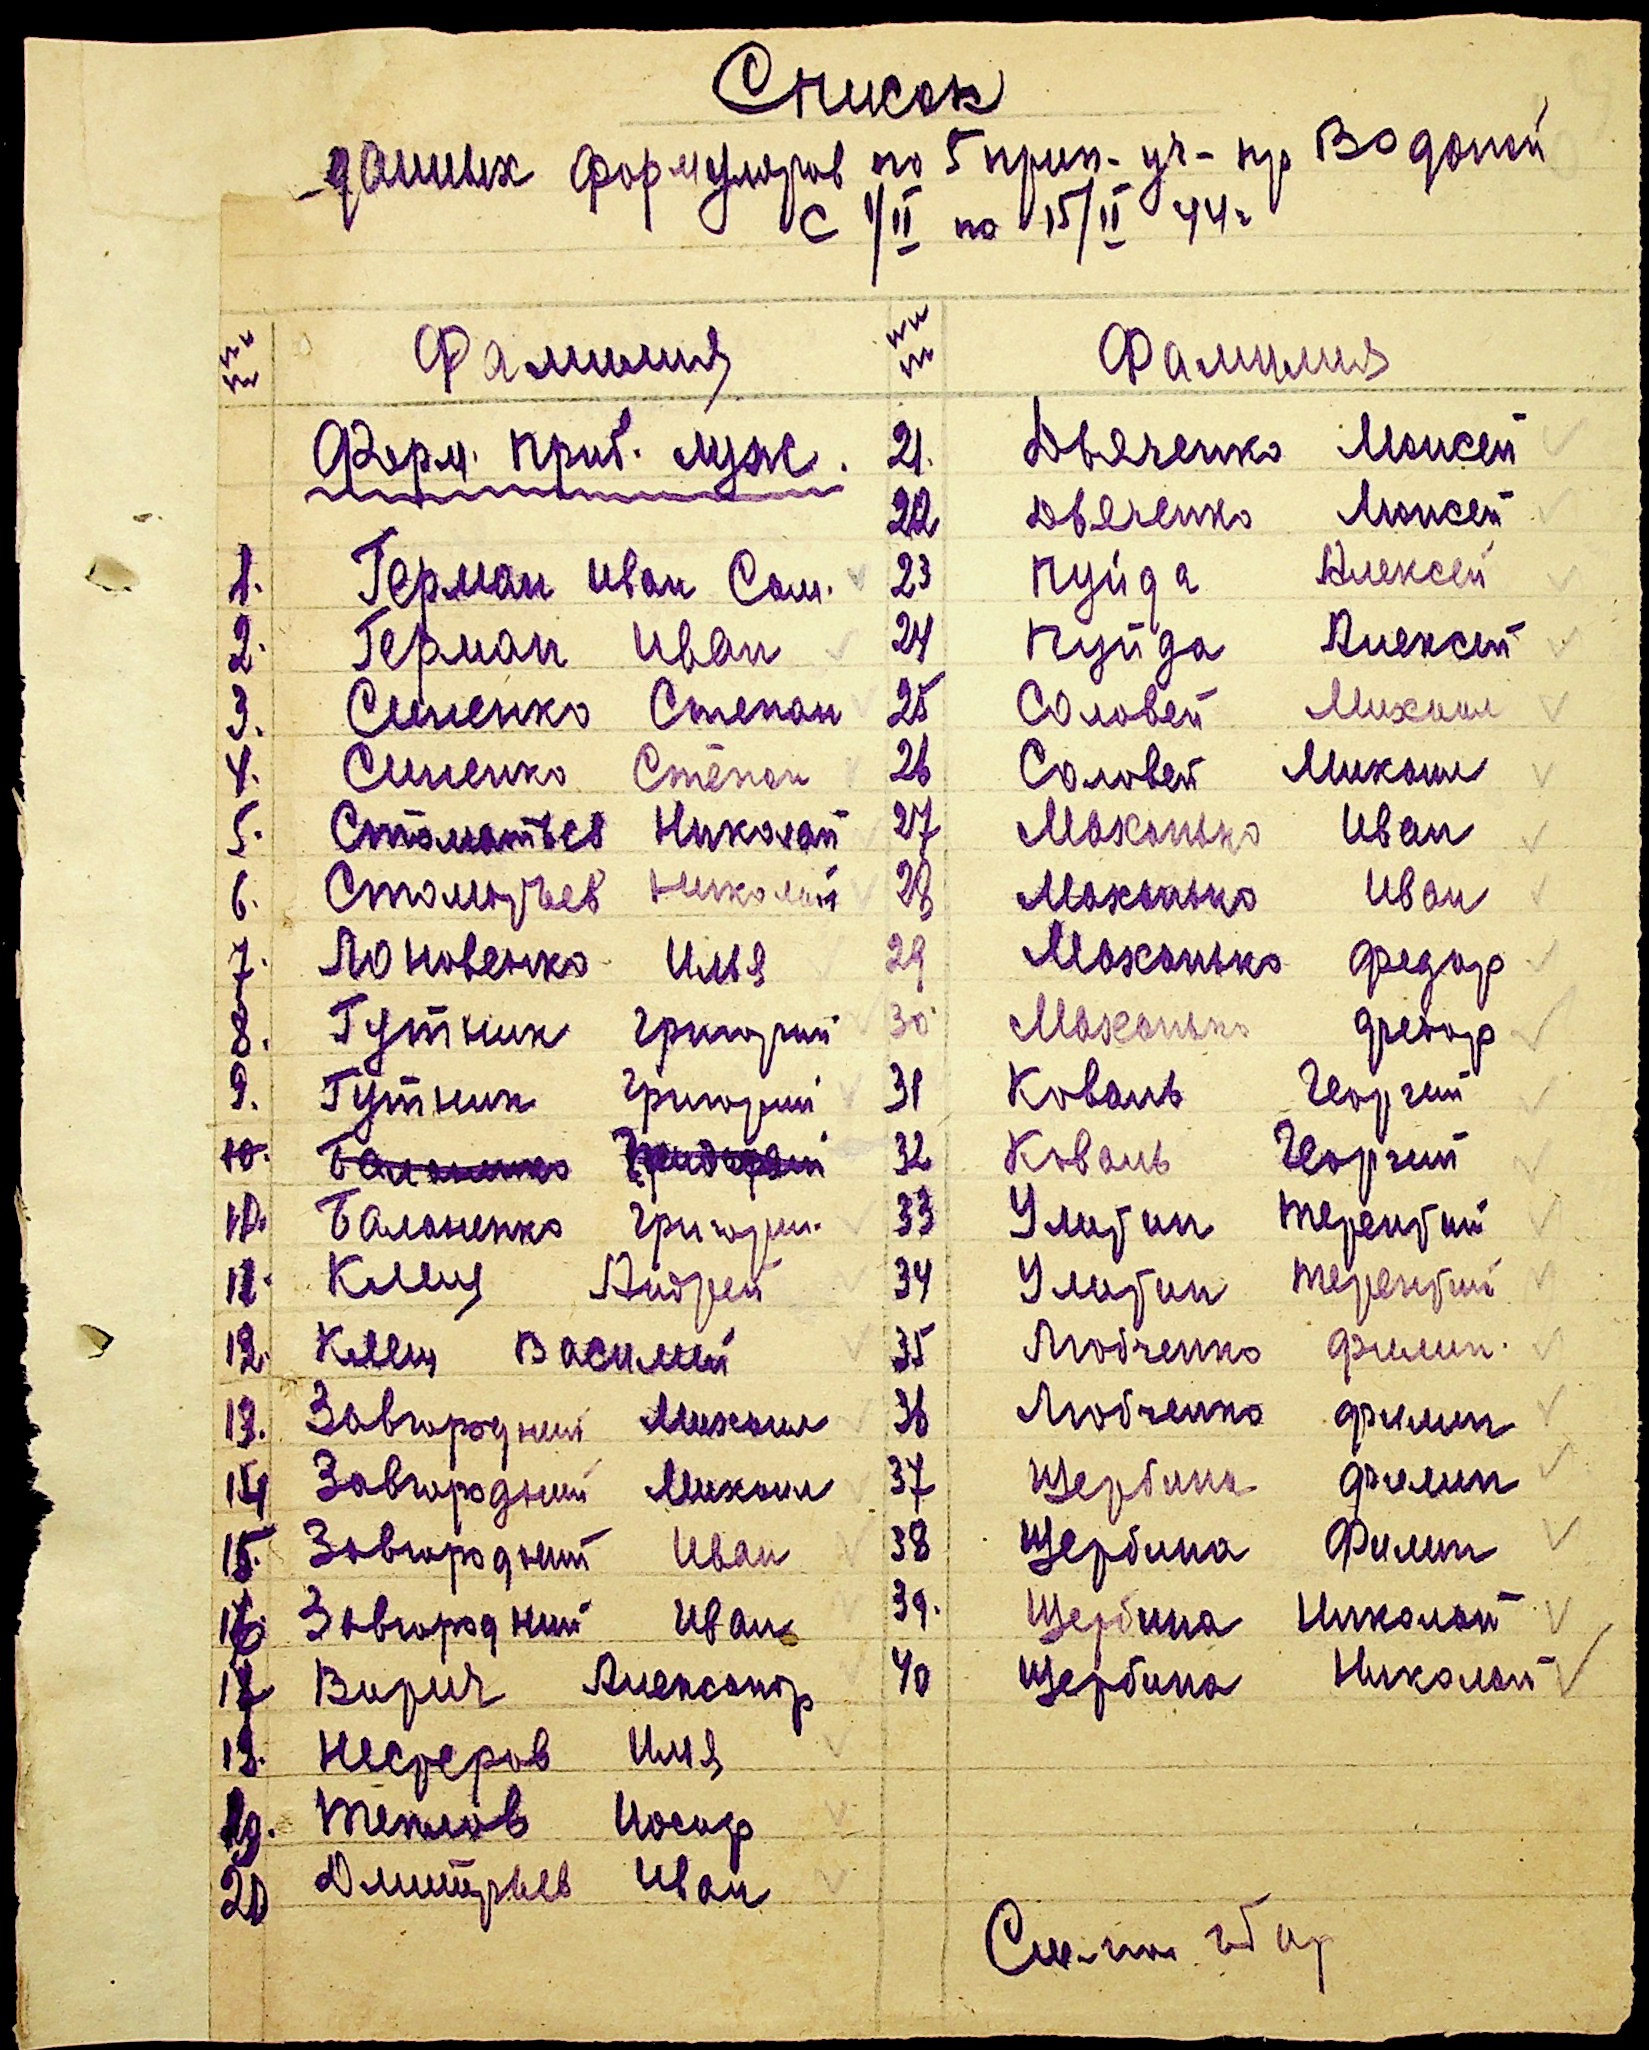 Список
данных формуляров по 5 прип- уч- пр Водопой
с 1/II по 15/II 44г
№№ Фамилия
Форм. приб. муж.
1. Герман Иван Сам.
2. Герман Иван
3. Синенко Степан
4. Синенко Степан
5. Стоматьев Николай
6. Стоматьев Николай
7. Лоновенко Илья
8. Гутник Григорий
9. Гутник Григорий
10. Баланенко Григорий
10. Баланенко Григори.
11. Клещ Андрей
12. Клещ Василий
13. Завгородний Михаил
14 Завгородний Михаил
15. Завгородний Иван
16. Завгородний Иван
17 Вирич Александр
18. Нестеров Илья
19. Теплов Иосиф
20 Дмитрьев Иван
№№ Фамилия
21. Дьяченко Моисей
22 Дьяченко Моисей
23 Пуйда Алексей
24 Пуйда Алексей
25 Соловей Михаил
26 Соловей Михаил
27 Маханько Иван
28 Маханько Иван
29 Маханько Федор
30 Маханько Федор
31 Коваль Георгий
32 Коваль Георгий
33 Улитин Терентий
34 Улитин Терентий
35 Любченко Филип.
36 Любченко Филип
37 Щербина Филип
38 Щербина Филип
39. Щербина Николай
40 Щербина Николай